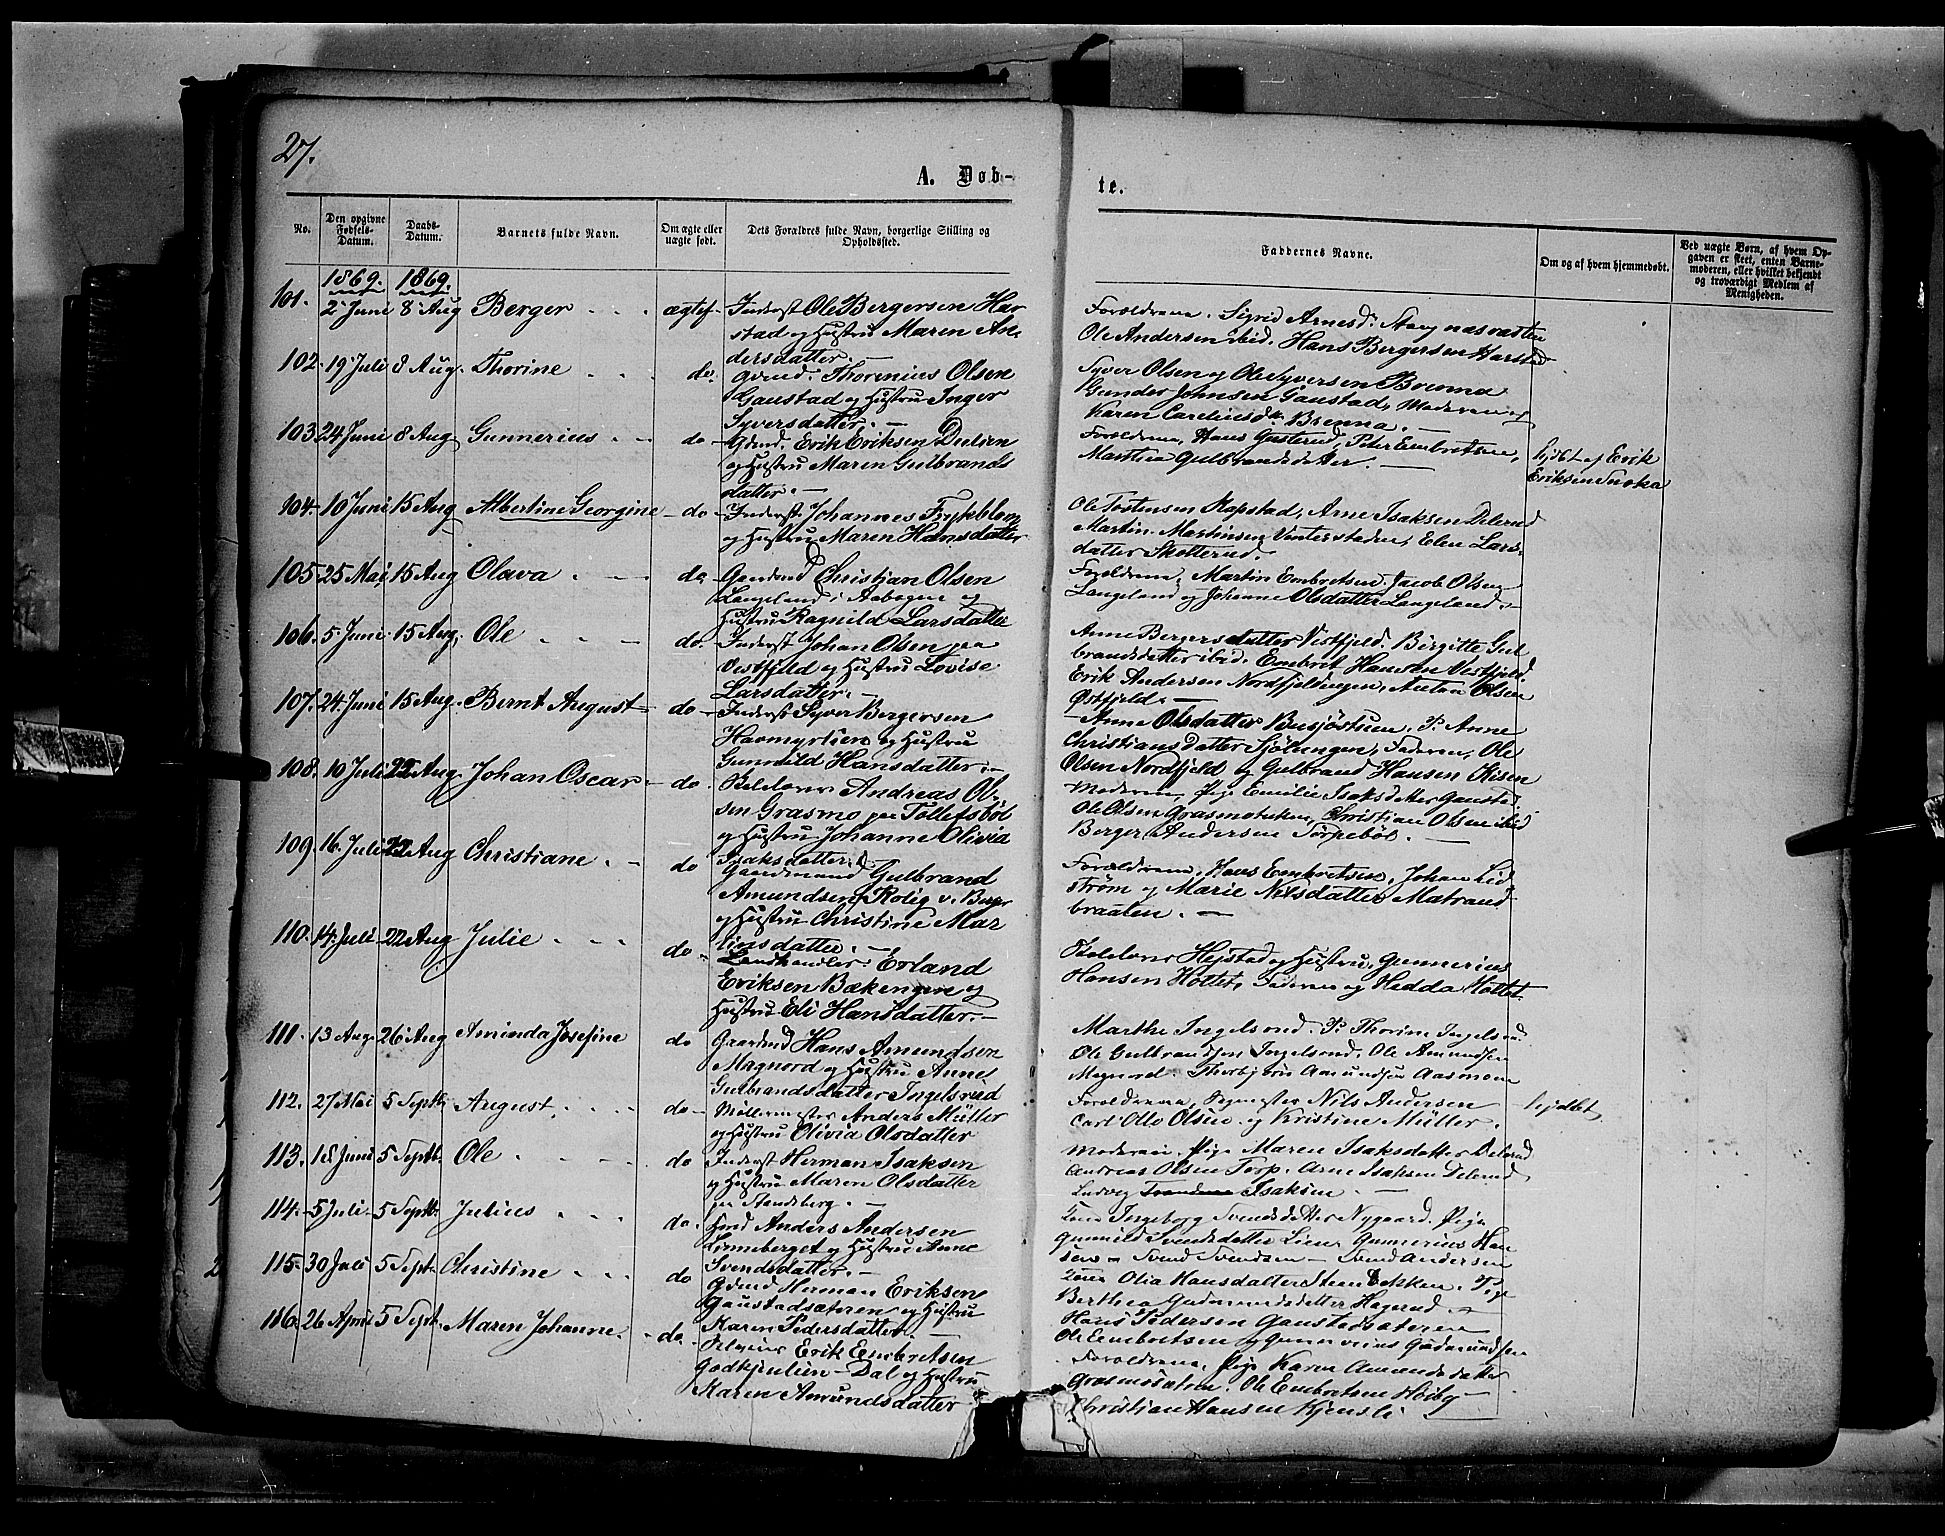 27.
A. Døb-
te.
No.
Den opgivne Fødsels-Datum.
Daabs-Datum.
Barnets fulde Navn.
Om ægte eller uægte født.
Dets Forældres fulde Navn, borgerlige Stilling og Opholdssted.
Faddernes Navne.
Om og af hvem hjemmedøbt.
Ved uægte Børn, af hvem Op-
gaven er skeet, enten Barne-
moderen, eller hvilket bekjendt
og troværdigt Medlem af
Menigheden.
1869. 1869.
101. 2 Juni 8 Aug Berger ægtef Inderst Ole Bergersen Har
stad og Hustru Maren An-
dersdatter.
Forældrene. Sigrid Arnesd.
Ole Andersen ibid. Hans Bergersen Harstad
102. 19 Juli 8 Aug. Thorine do. Gdmd. Thorenius Olsen
Gaustad og Hustru Inger
Syversdatter.
Syver Olsen og Ole Syversen Brenna
Gunder Johnsen Gaustad, Moderen og
Karen Brenna.
103 24 Juni 8 Aug Gunnerius do Gdmd. Erik Eriksen
og Hustru Maren Gulbrands
datter.
Forældrene, Hans Peter Embretsen,
Marthea Gulbrandsdatter.
hjdbt af Erik
Eriksen
104. 10 Juni 15 Aug Albertine Georgine do Inderst Johannes Frykblom
og Hustru Maren Hansdatter
Ole Tostensen Rapstad, Arne Isaksen Delerud
Martin Martinsen Elen Lars-
datter Skotterud.
105. 25 Mai 15 Aug Olava do Gaardmd Christian Olsen
Langeland i Aabogen og
Hustru Ragnild Larsdatter
Forældrene, Martin Embretsen, Jacob Olsen
Langeland og Johanne Olsdatter Langeland.
106. 5 Juni 15 Aug. Ole do. Inderst Johan Olsen paa
Vestfjeld og Hustru Lovise
Larsdatter.
Anne Bergersdatter Vestfjeld. Birgitte Gul
brandsdatter ibid. Embret Hansen Vestfjeld.
Erik Andersen Nordfjeldengen, Anton Olsen
Østfjeld.
107. 24 Juni 15 Aug. Bernt August do Inderst Syver Bergersen
og Hustru
Gunnild Hansdatter.
Anne Olsdatter P. Anne
Christiansdatter Faderen, Ole
Olsen Nordfjeld og Gulbrand Hansen
108. 10 Juli 22 Aug Johan Oscar do. Skolelærer Andreas Ol-
sen Grasmo paa Tollefsbøl
og Hustru Johanne Olivia
Isaksdatter
Moderen, Pige Emilie Isaksdatter Gaustad
Ole Olsen Christian Olsen ibid
Berger Andersen Torpebøl.
109. 16 Juli 22 Aug Christiane do Gaardmand Gulbrand
Amundsen Rolig v.
og Hustru Christine Mar
tinsdatter.
Forældrene, Hans Embretsen, Johan Lid
strøm og Marie Nilsdatter Matrand
braaten.
110. 14 Juli 22 Aug Julie do Landhandler Erland
Eriksen Bækengen og
Hustru Eli Hansdatter.
Skolelærer Hejstad og Hustru, Gunnerius
Hansen Holtet, Faderen og Hedda Holtet
111. 13 Aug. 26 Aug Aminda Josefine do Gaardmd Hans Amundsen
Magnord og Hustru Anne
Gulbrandsdatter Ingelsrud
Marthe Ingelsrud. P. Thorine Ingelsrud.
Ole Gulbrandsen Ingelsrud. Ole Amundsen
Magnord. Thorbjørn Amundsen Aasmoen
112. 27 Mai 5 Septb August do Møllermester Anders Müller
og Hustru Olivia Olsdatter
Forældrene, Nils Andersen
Carl Otto Olsen og Kristine Müller.
hjdbt
113. 18 Juni 5 Septb. Ole do Inderst Herman Isaksen
og Hustru Maren Olsdatter
Moderen, Pige Maren Isaksdatter Delerud
Andreas Olsen Torp. Arne Isaksen Delerud
Ludvig Isaksen
114. 5 Juli 5 Septb. Julius do. Anders Andersen
Linneberget og Hustru Anne
Svendsdatter.
Kone Ingeborg Svendsdatter Nygaard. Pige
Gunnild Svendsdatter Lien, Gunnerius Han
sen Svend Svendsen Svend Andersen
115. 30 Juli 5 Sept. Christine do Gdmd Herman Eriksen
Gaustadsæteren og Hustru
Karen Pedersdatter.
Kone Olia Hansdatter Steenbekken. Pige
Berthea Gudmundsdatter Hagerud.
Hans Pedersen Gaustadsæteren
Ole Embretsen og Gunnerius Gudmundsen
116. 26 April 5 Sept. Maren Johanne. do. Erik Embretsen
Dal og Hustru
Karen Amundsdatter
Forældrene, Pige Karen Amundsdatter
Ole Embretsen
Christian Hansen Kjensli